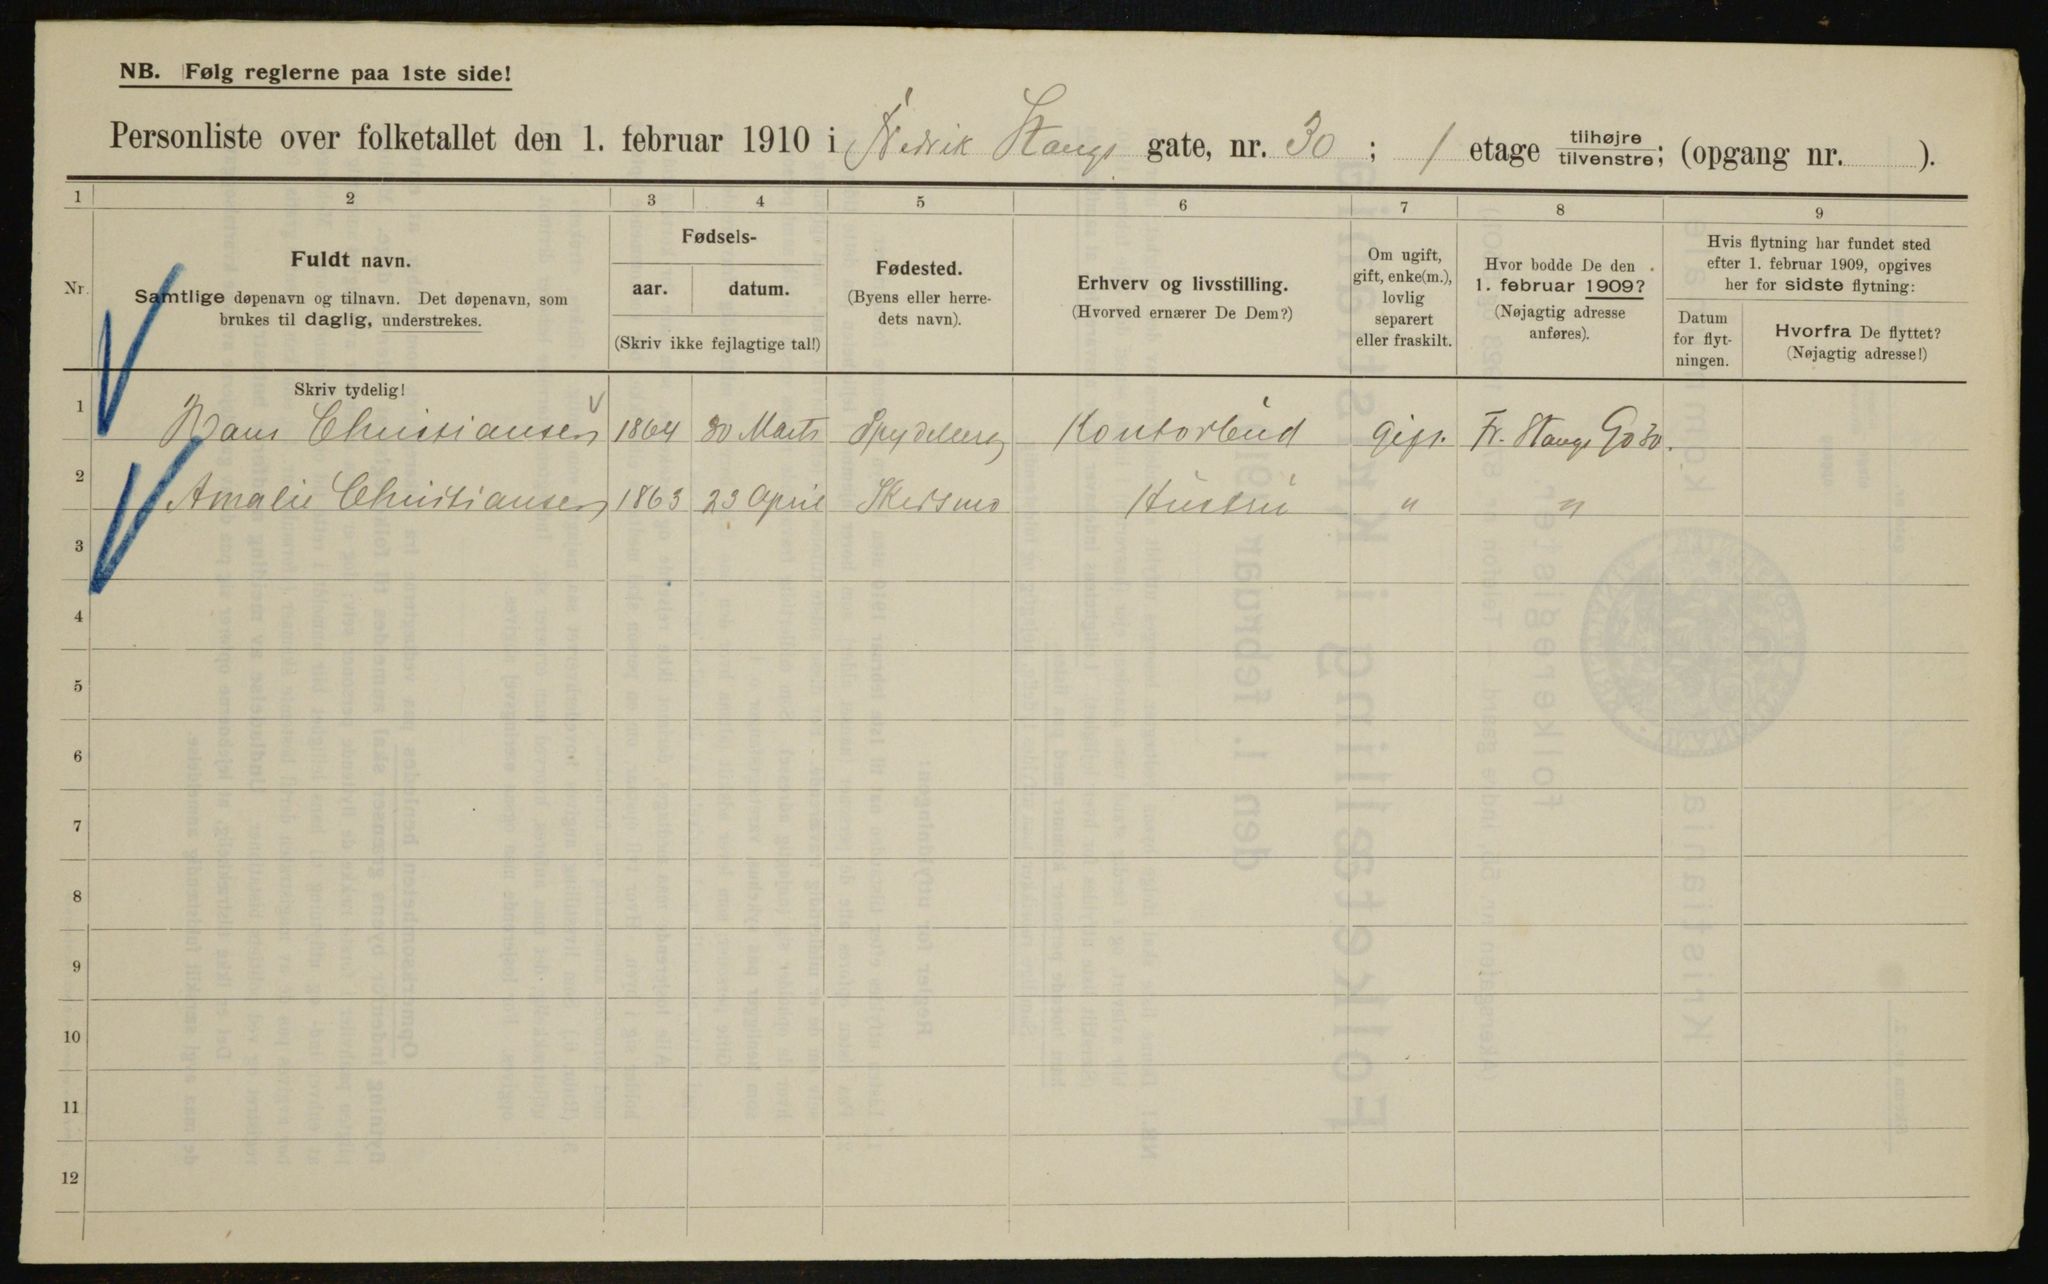 NB. Følg reglerne paa 1ste side!
Personliste over folketallet den 1. februar 1910 i Fredrik Stangs gate, nr. 30 ; 1 etage tilhøjre/tilvenstre; (opgang nr. ).
1 2 3 4 5 6 7 8 9
Nr.
Fuldt navn.
Samtlige døpenavn og tilnavn. Det døpenavn, som
brukes til daglig, understrekes.
Fødsels-
aar. datum.
(Skriv ikke fejlagtige tal!)
Fødested.
(Byens eller herre-
dets navn).
Erhverv og livsstilling.
(Hvorved ernærer De Dem?)
Om ugift,
gift, enke(m.),
lovlig
separert
eller fraskilt.
Hvor bodde De den
1. februar 1909?
(Nøjagtig adresse
anføres).
Hvis flytning har fundet sted
efter 1. februar 1909, opgives
her for sidste flytning:
Datum
for flyt-
ningen.
Hvorfra De flyttet?
(Nøjagtig adresse!)
Skriv tydelig!
1 Hans Christiansen 1864 30 Marts Spydeberg Kontorbud gift. Fr. Stangs G 30.
2 Amalie Christiansen 1863 23 April Skedsmo Hustru " "
3
4
5
6
7
8
9
10
11
12